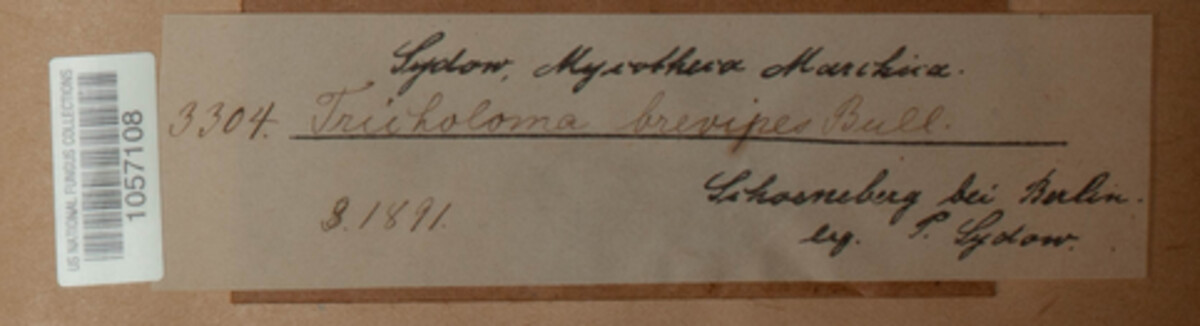 US NATIONAL FUNGUS COLLECTIONS
1057108
Sydow, Mycotheca Marchica.
3304. Tricholoma brevipes Bull.
8. 1891.
Schoeneberg bei Berlin.
leg. P. Sydow.